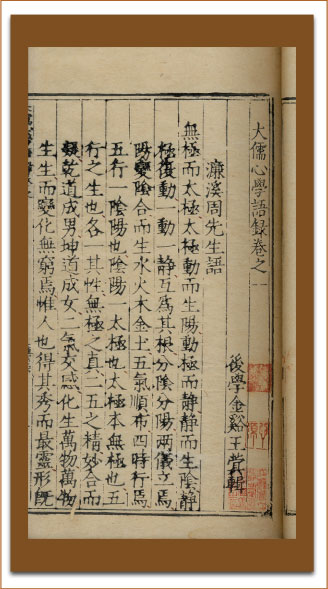 大儒心學語錄卷之一
後學金谿王蓂輯
濂溪周先生語
無極而太極太極動而生陽動極而靜靜而生陰靜
極復動 動一靜互爲其根分陰分陽兩儀立焉
陽變陰合而生水火木金土五氣順布四時行焉
五行一陰陽也陰陽 太極也太極本無極也五
行之生也各一其性無極之真二五之精妙合而
凝乾道成男坤道成女二氣交感化生萬物萬物
生生而變化無窮焉惟人也得其秀而最靈形既